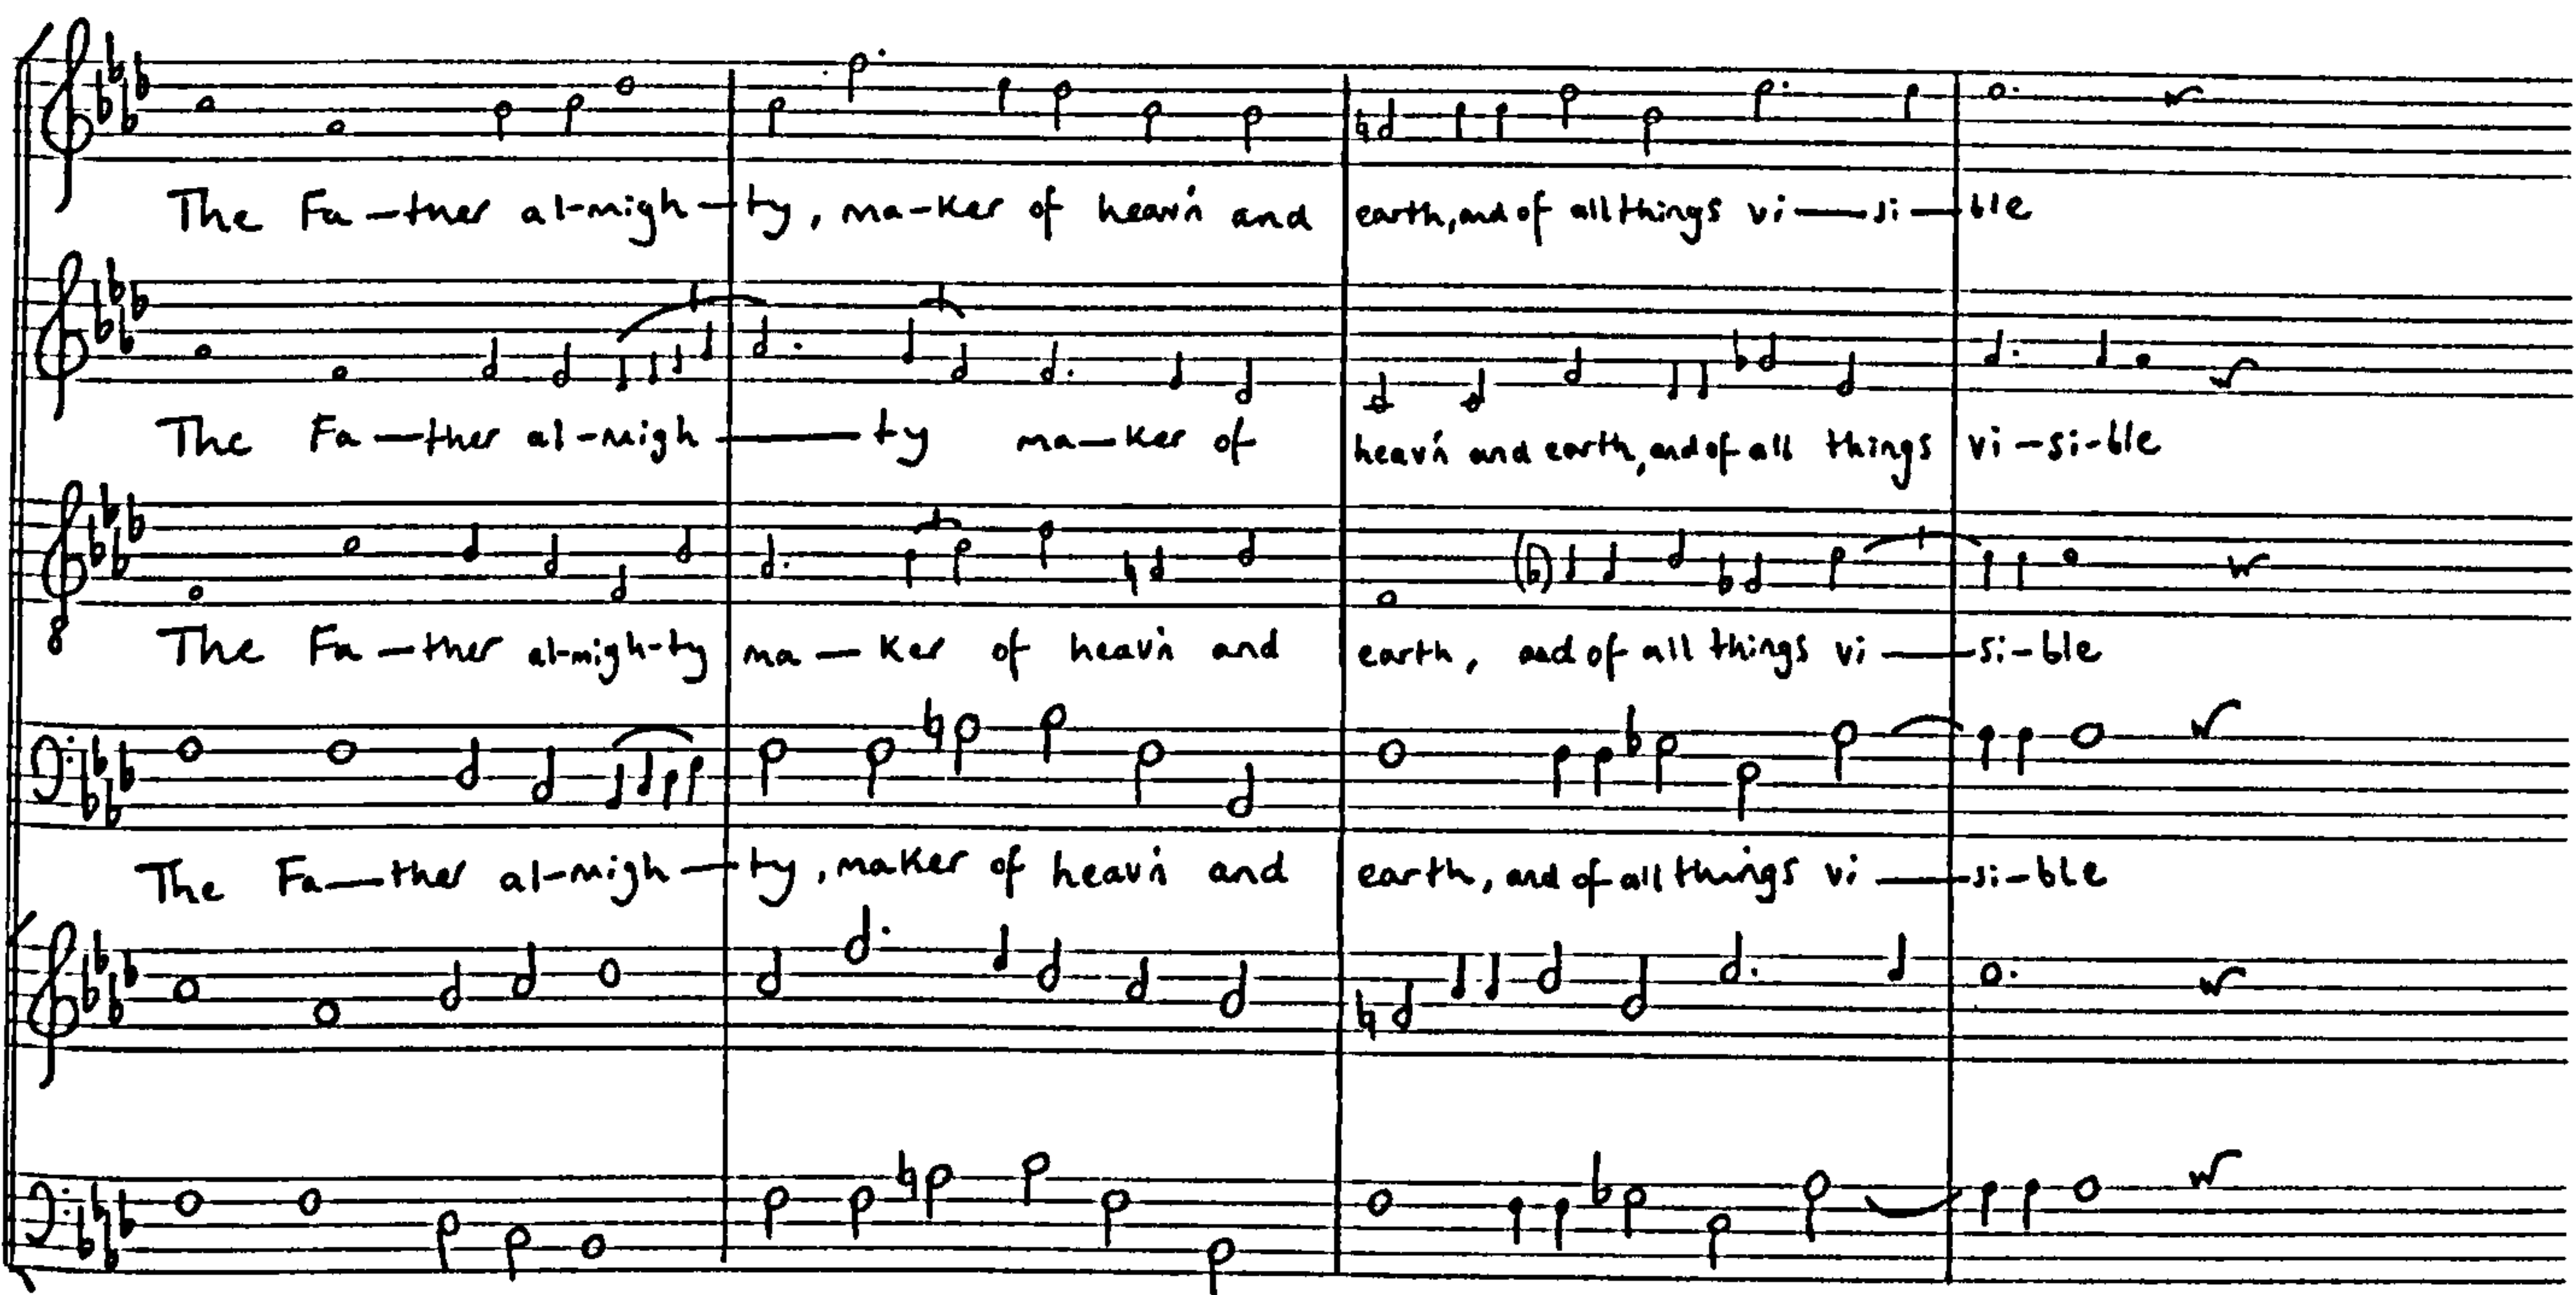 The Fa-ther al-migh-ty, ma-ker of heav'n and earth, and of all things vi-si-ble
The Fa-ther al-migh-ty ma-ker of heav'n and earth, and of all things vi-si-ble
8
The Fa-ther al-migh-ty ma-ker of heav'n and earth, and of all things vi-si-ble
The Fa-ther al-migh-ty, maker of heav'n and earth, and of all things vi-si-ble